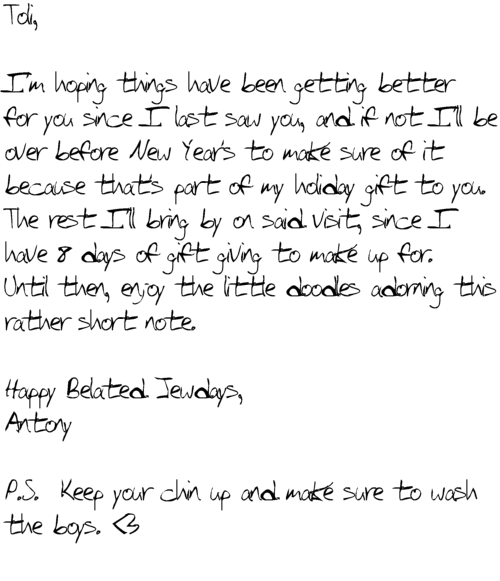 Tdi,
I'm hoping things have been getting better
for you since I last saw you, and if not I'll be
over before New Year's to make sure of it
because that's part of my holiday gift to you.
The rest I'll bring by on said visit, since I
have 8 days of gift giving to make up for.
Until then, enjoy the little doodles adorning this
rather short note.
Happy Belated Jewdays,
Antony
P.S. Keep your chin up and make sure to wash
the boys. <3